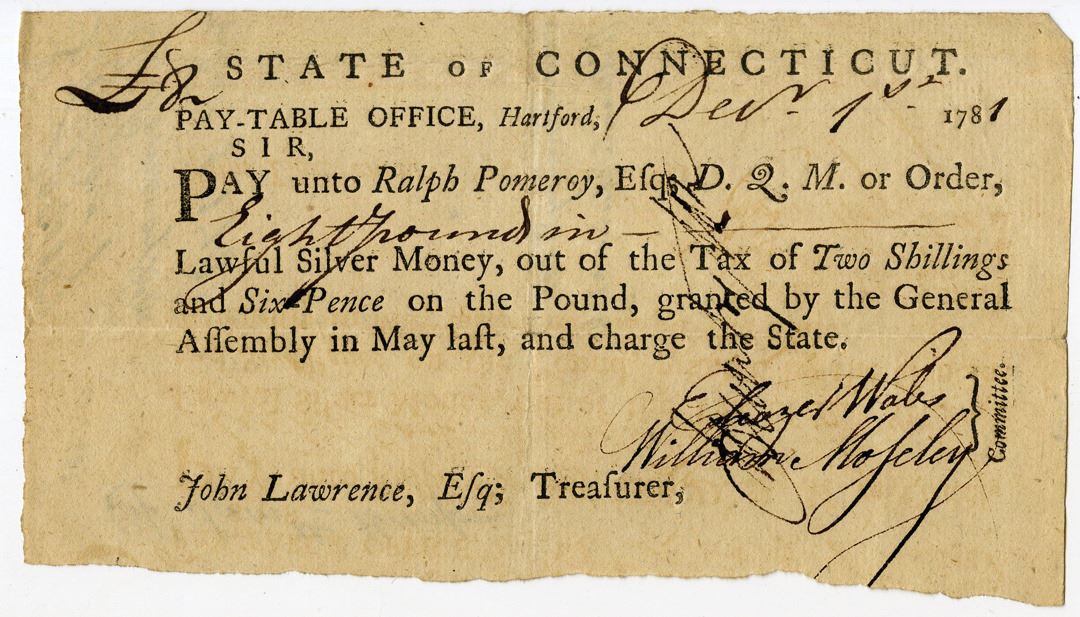 £8 STATE OF CONNECTICUT.
PAY-TABLE OFFICE, Hartford, Decr. 1st 1781
SIR,
PAY unto Ralph Pomeroy, Eſq; D. Q. M. or Order,
Eight pounds in
Lawful Silver Money, out of the Tax of Two Shillings
and Six-Pence on the Pound, granted by the General
Aſſembly in May laſt, and charge the State.
Eleazer Wales
William Moſeley } Committee.
John Lawrence, Eſq; Treaſurer,